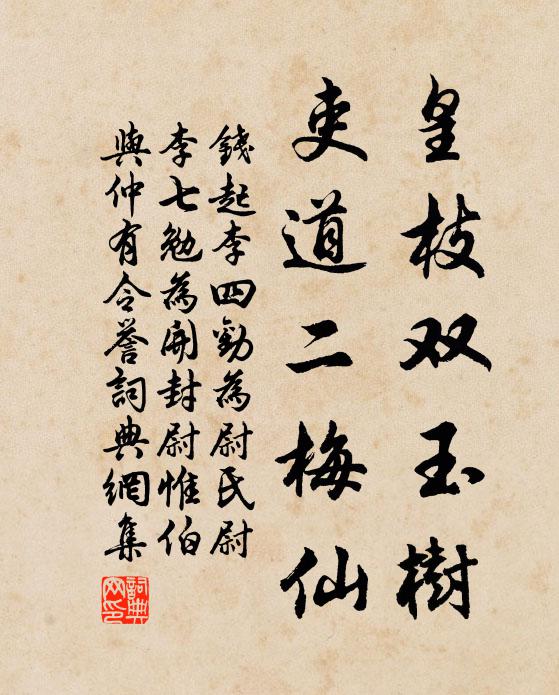 皇枝双玉樹
吏道二梅仙
錢起李四勸為尉氏尉
李七勉為開封尉惟伯
與仲有令譽詞典網集
詞典網印